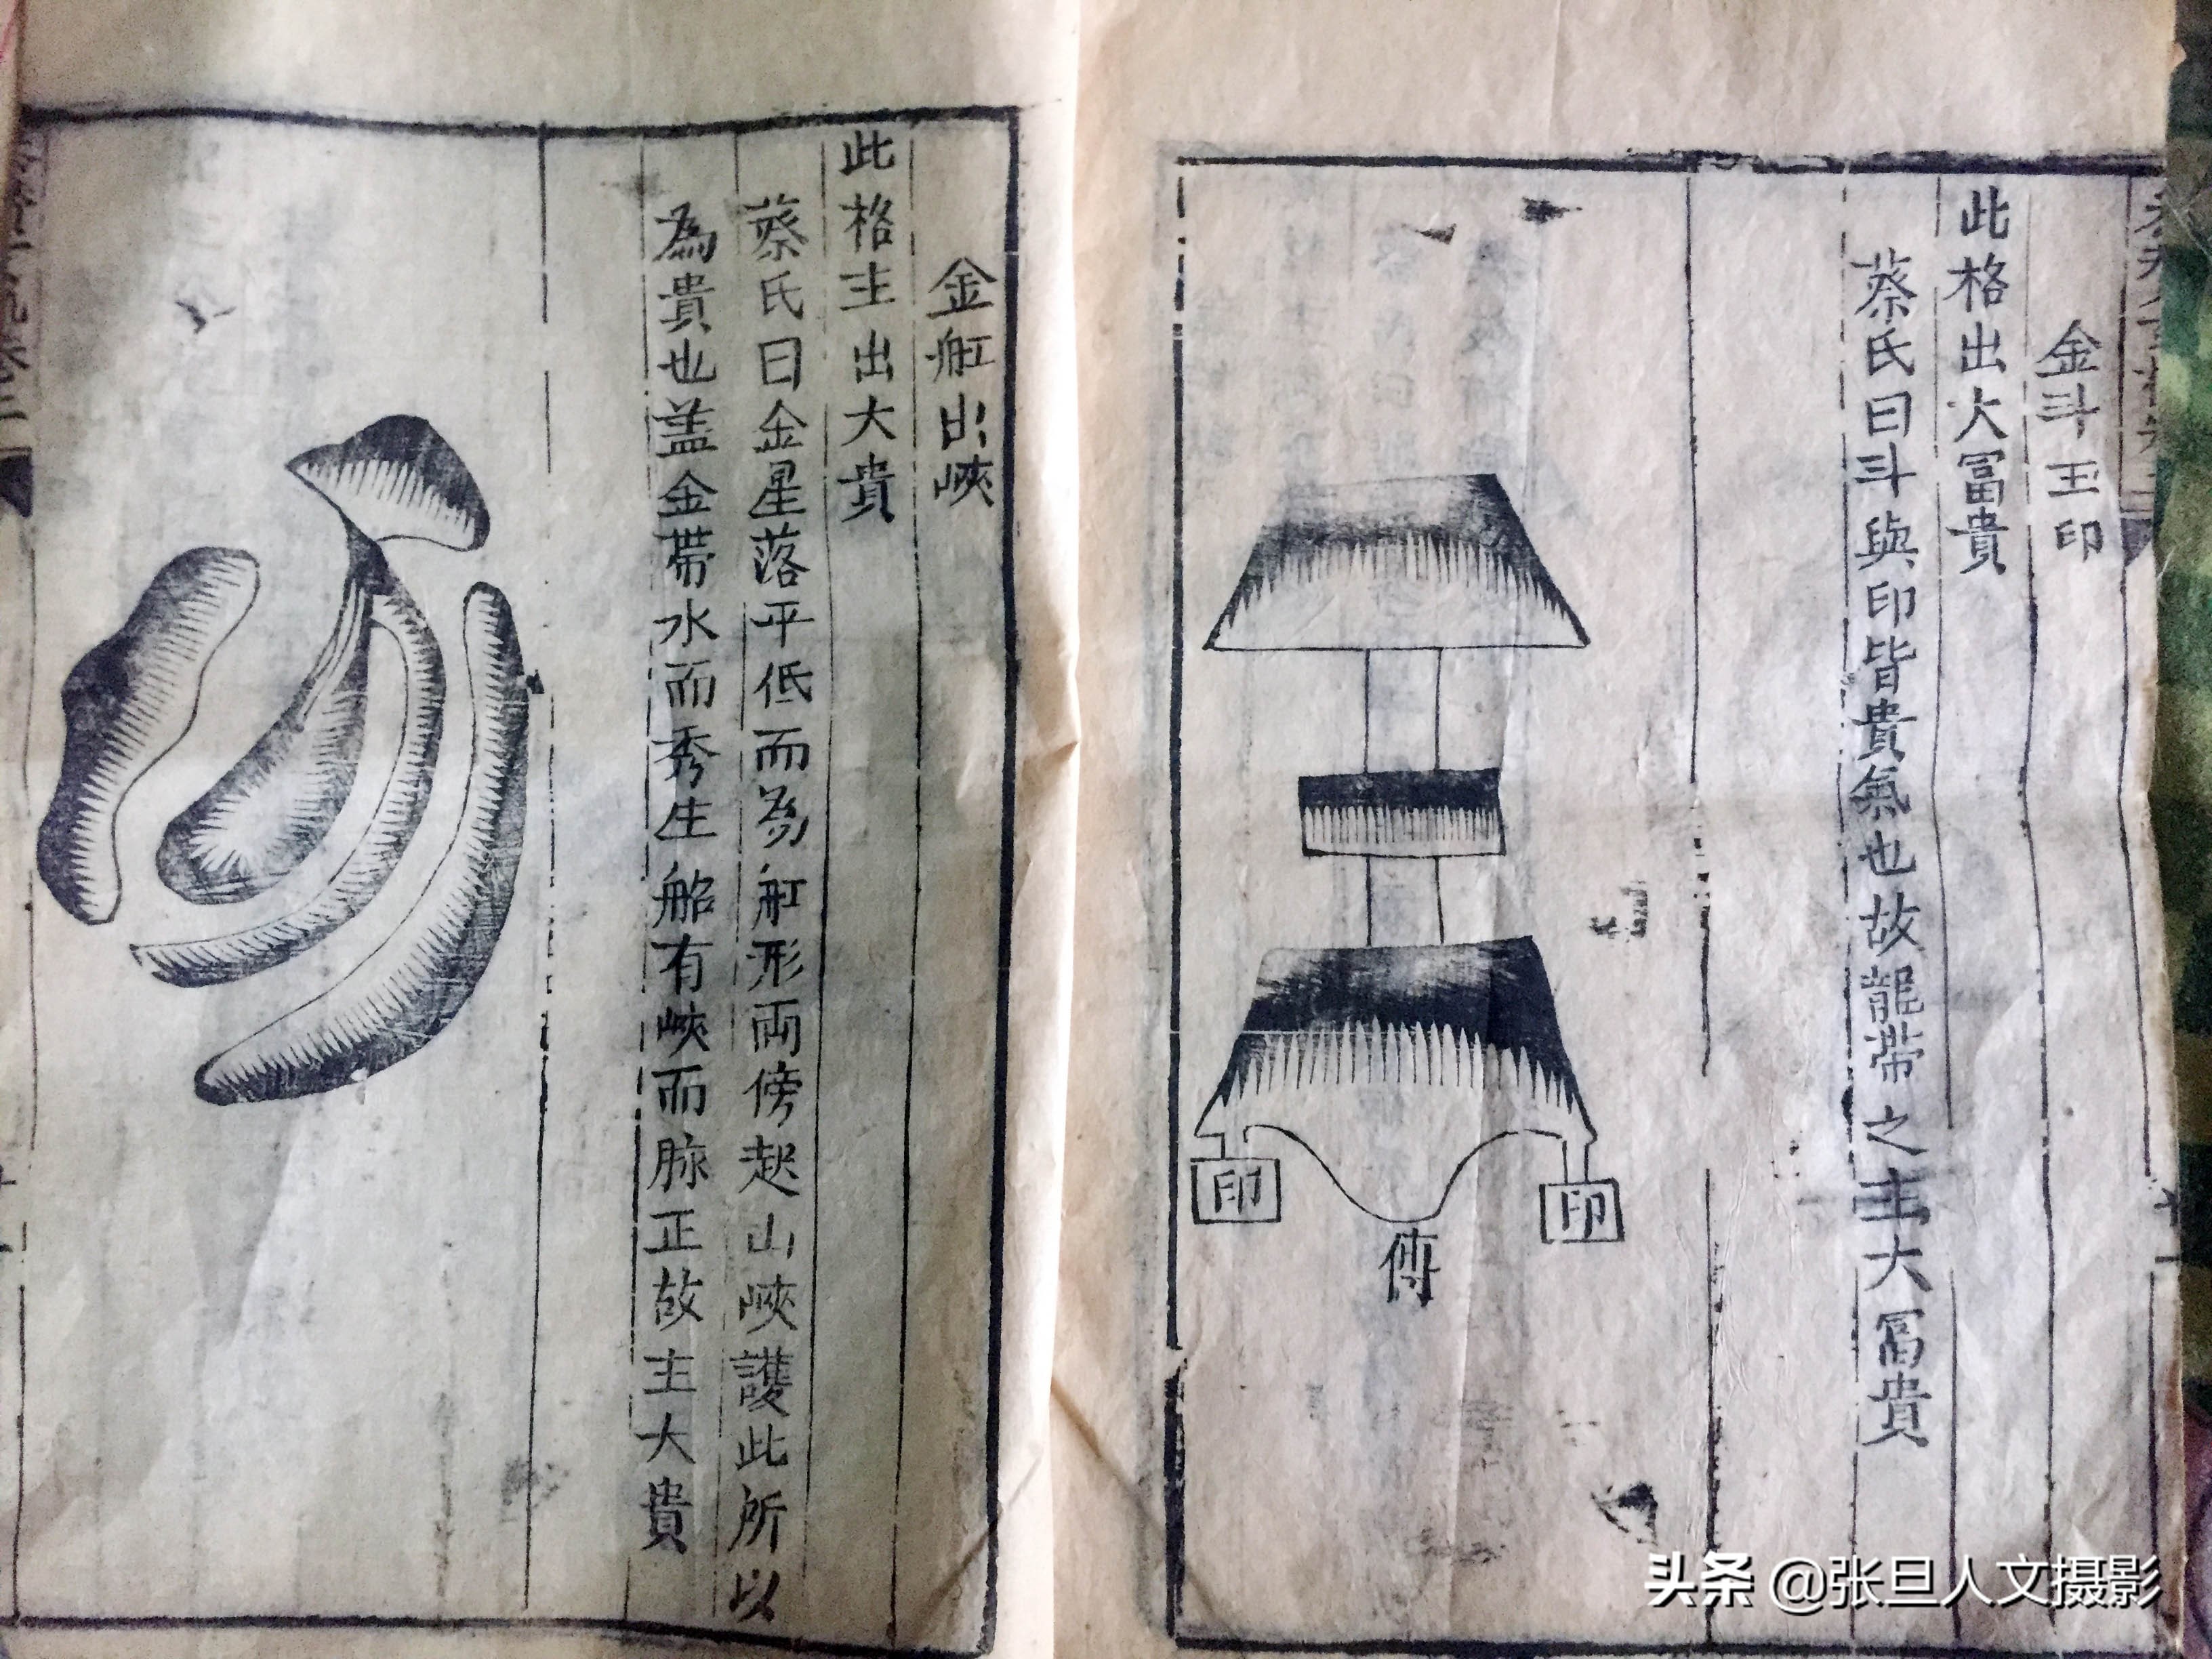 金斗玉印
此格出大冨貴
蔡氏曰斗與印皆貴氣也故龍帶之主大冨貴
印
印
傳
金舡出峽
此格主出大貴
蔡氏曰金星落平低而為舡形両傍起山峽護此所以
為貴也盖金帶水而秀生船有峽而脉正故主大貴
头条 @张旦人文摄影